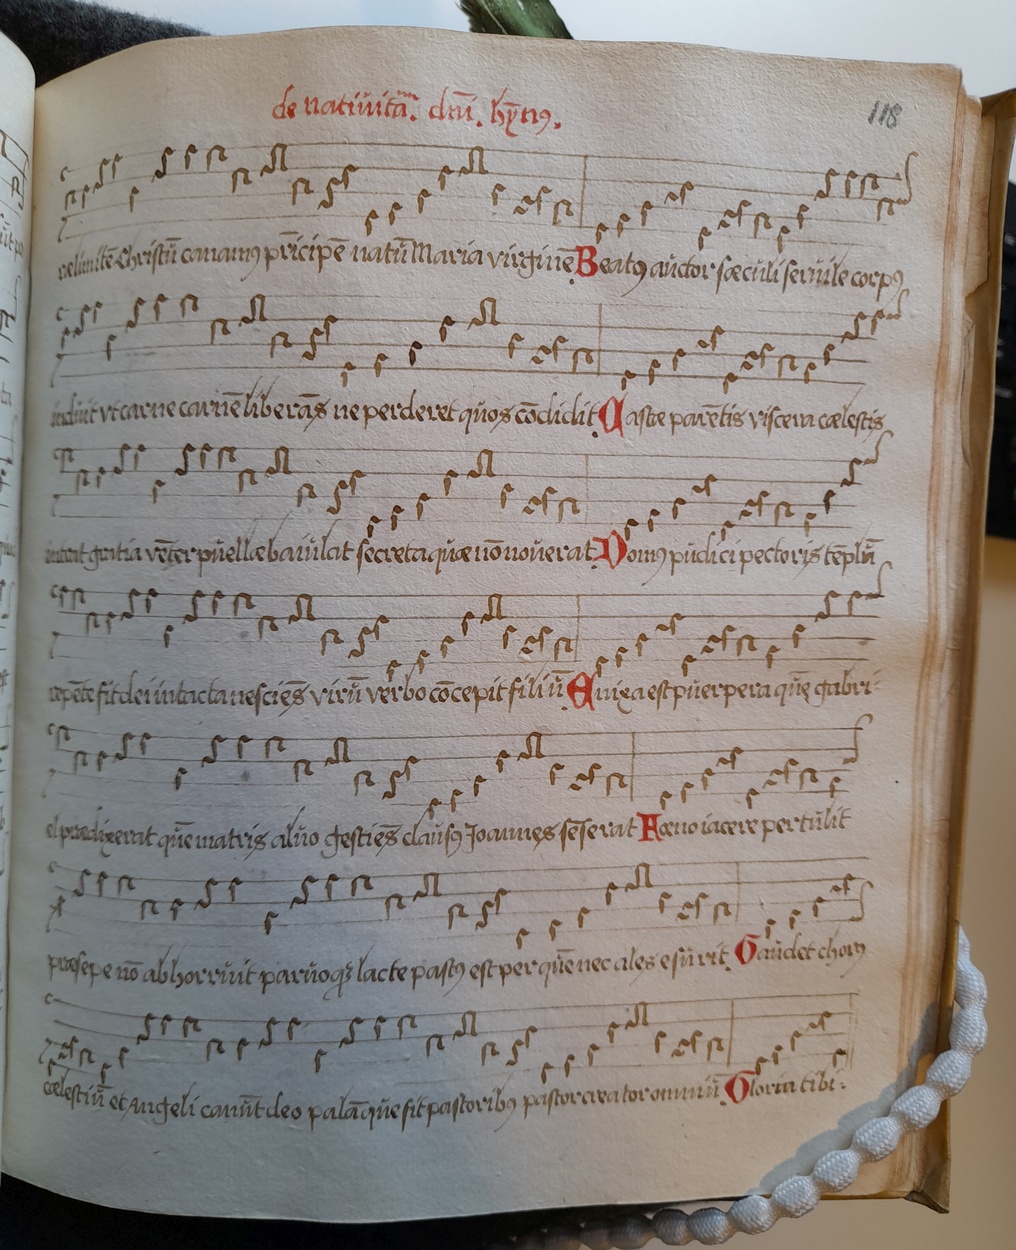 de natiuita. dnī. hyn9.
118
ne limitē Christū canam9 prīcipē natū Maria virginē Beat9 auctor sæculi seruile corp9
induit vt carne carnē liberās ne perderet quos cōdidit Castæ parētis viscera cælestis
intrat gratia vēter puellæ baiulat secreta quæ nō nouerat Dom9 pudici pectoris tēplū
repēte fit dei intacta nesciēs virū verbo cōcepit filiū Enixa est puerpera quę gabri-
el prædixerat quē matris aluo gestiēs claus9 Joannes sēserat Fœno iacere pertulit
præsepe nō abhorruit paruoqꝫ lacte past9 est per quē nec ales esurit Gaudet chor9
cælestiū et Angeli canūt deo palāque fit pastorib9 pastor creator omniū Gloria tibi-